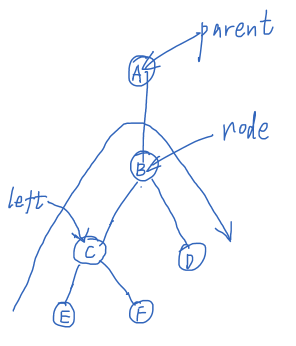 parent
A
node
B
left
C
D
E
F